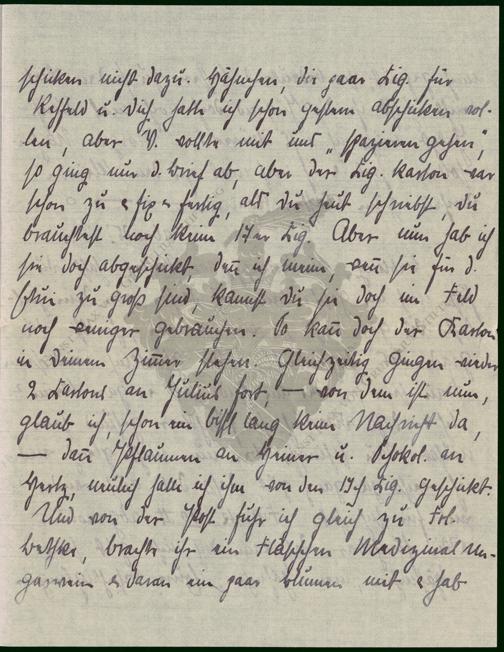 schicken nicht dazu. Hähnchen, die paar Zig. für
Rehfeld u. dich hatte ich schon gestern abschicken wol-
len, aber V. wollte mit uns „spazieren gehen“,
so ging nur d. Brief ab, aber der Zig. Karton war
schon zu & fix & fertig, als du heut schriebst, du
brauchtest noch keine 17er Zig. Aber nun hab ich
sie doch abgeschickt, denn ich meine, wenn sie für d.
Etui zu groß sind kannst du sie doch im Feld
noch weniger gebrauchen. So kann doch der Karton
in deinem Zimmer stehen. Gleichzeitig gingen wieder
2 Kartons an Julius fort, — von dem ist nun,
glaub ich, schon ein bissl lang keine Nachricht da,
— dann Pflaumen an Heiner u. Schokol. an
Hertz, neulich hatte ich ihm von den 17ch Zig. geschickt.
Und von der Post fuhr ich gleich zu Frl.
Bethke, brachte ihr ein Fläschchen Medizinal Un-
garwein & daran ein paar Blumen mit & hab